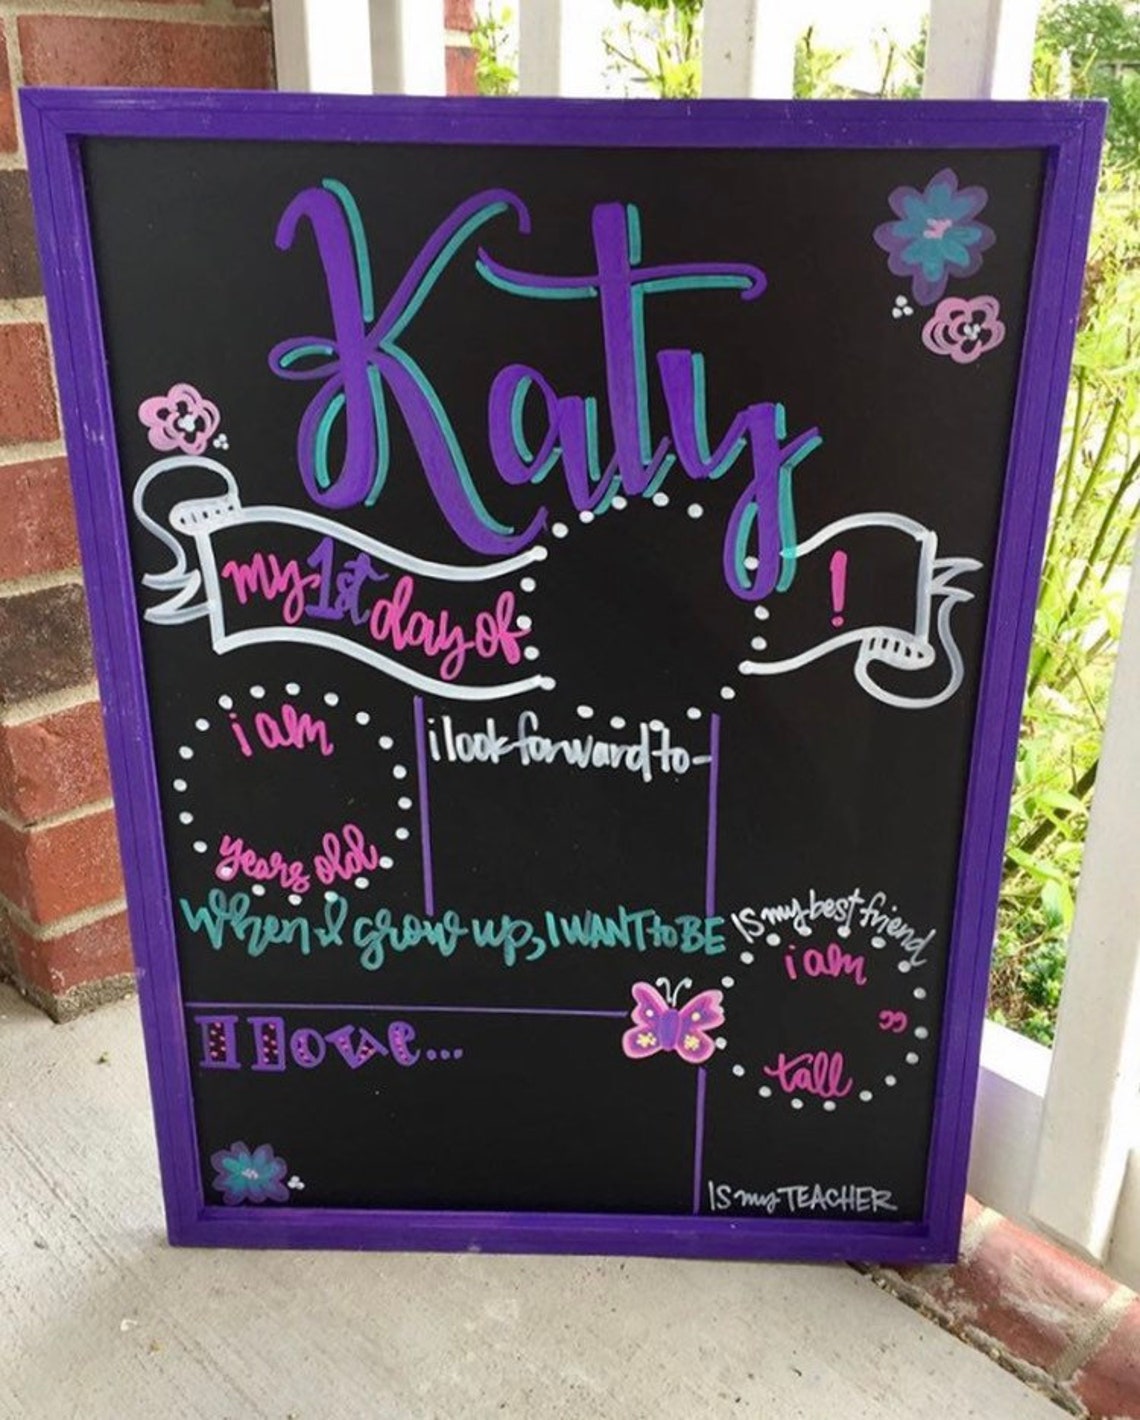 Katy
my 1st day of !
i am
years old
i look forward to-
When I grow up, I WANT to BE
IS my best friend
i am
"
tall
I love...
IS my TEACHER